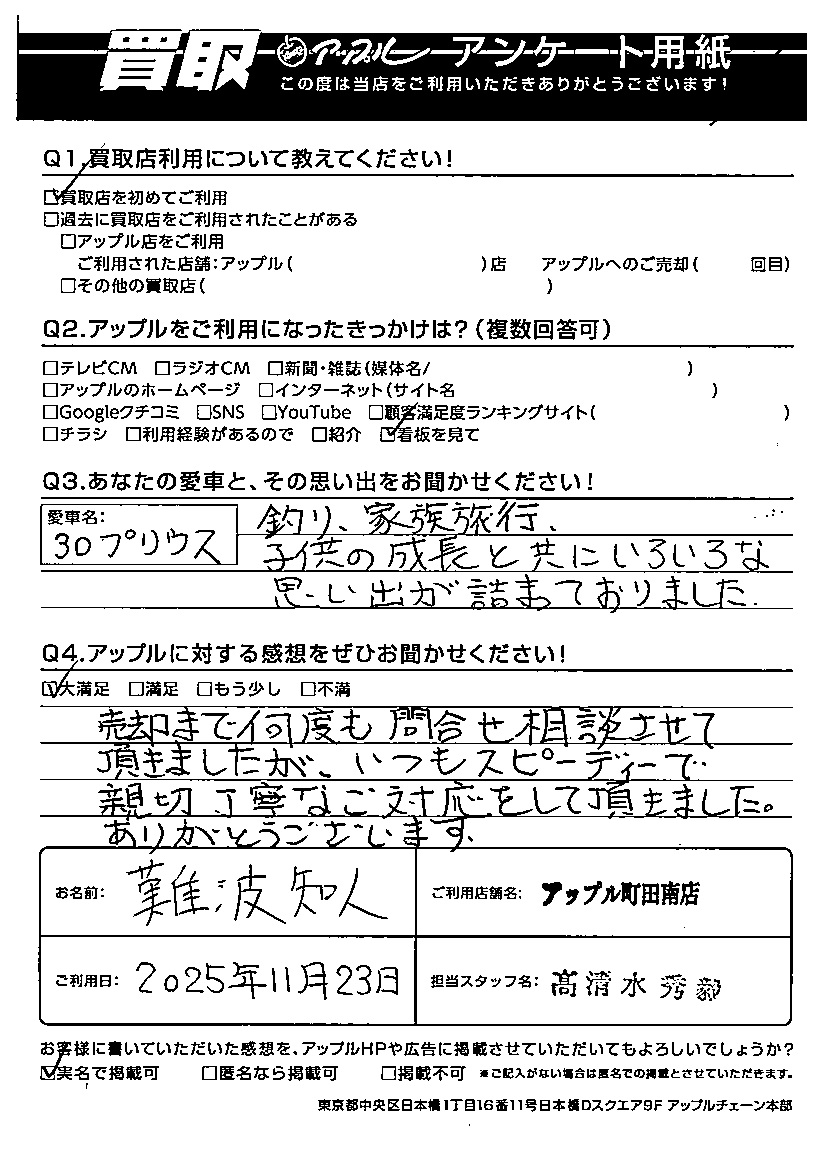 買取 アップル アンケート用紙
この度は当店をご利用いただきありがとうございます!
Q1.買取店利用について教えてください!
☑買取店を初めてご利用
□過去に買取店をご利用されたことがある
□アップル店をご利用
ご利用された店舗:アップル( )店 アップルへのご売却( 回目)
□その他の買取店( )
Q2.アップルをご利用になったきっかけは?(複数回答可)
□テレビCM □ラジオCM □新聞・雑誌(媒体名/ )
□アップルのホームページ □インターネット(サイト名 )
□Googleクチコミ □SNS □YouTube □顧客満足度ランキングサイト( )
□チラシ □利用経験があるので □紹介 ☑看板を見て
Q3.あなたの愛車と、その思い出をお聞かせください!
愛車名:
30プリウス
釣り、家族旅行、
子供の成長と共にいろいろな
思い出が詰まっておりました.
Q4.アップルに対する感想をぜひお聞かせください!
☑大満足 □満足 □もう少し □不満
売却まで何度も問合せ相談させて
頂きましたが、いつもスピーディーで
親切丁寧なご対応をして頂きました。
ありがとうございます.
お名前: 難波知人
ご利用店舗名: アップル町田南店
ご利用日: 2025年11月23日
担当スタッフ名: 高清水 秀毅
お客様に書いていただいた感想を、アップルHPや広告に掲載させていただいてもよろしいでしょうか?
☑実名で掲載可 □匿名なら掲載可 □掲載不可 ※ご記入がない場合は匿名での掲載とさせていただきます。
東京都中央区日本橋1丁目16番11号日本橋Dスクエア9F アップルチェーン本部